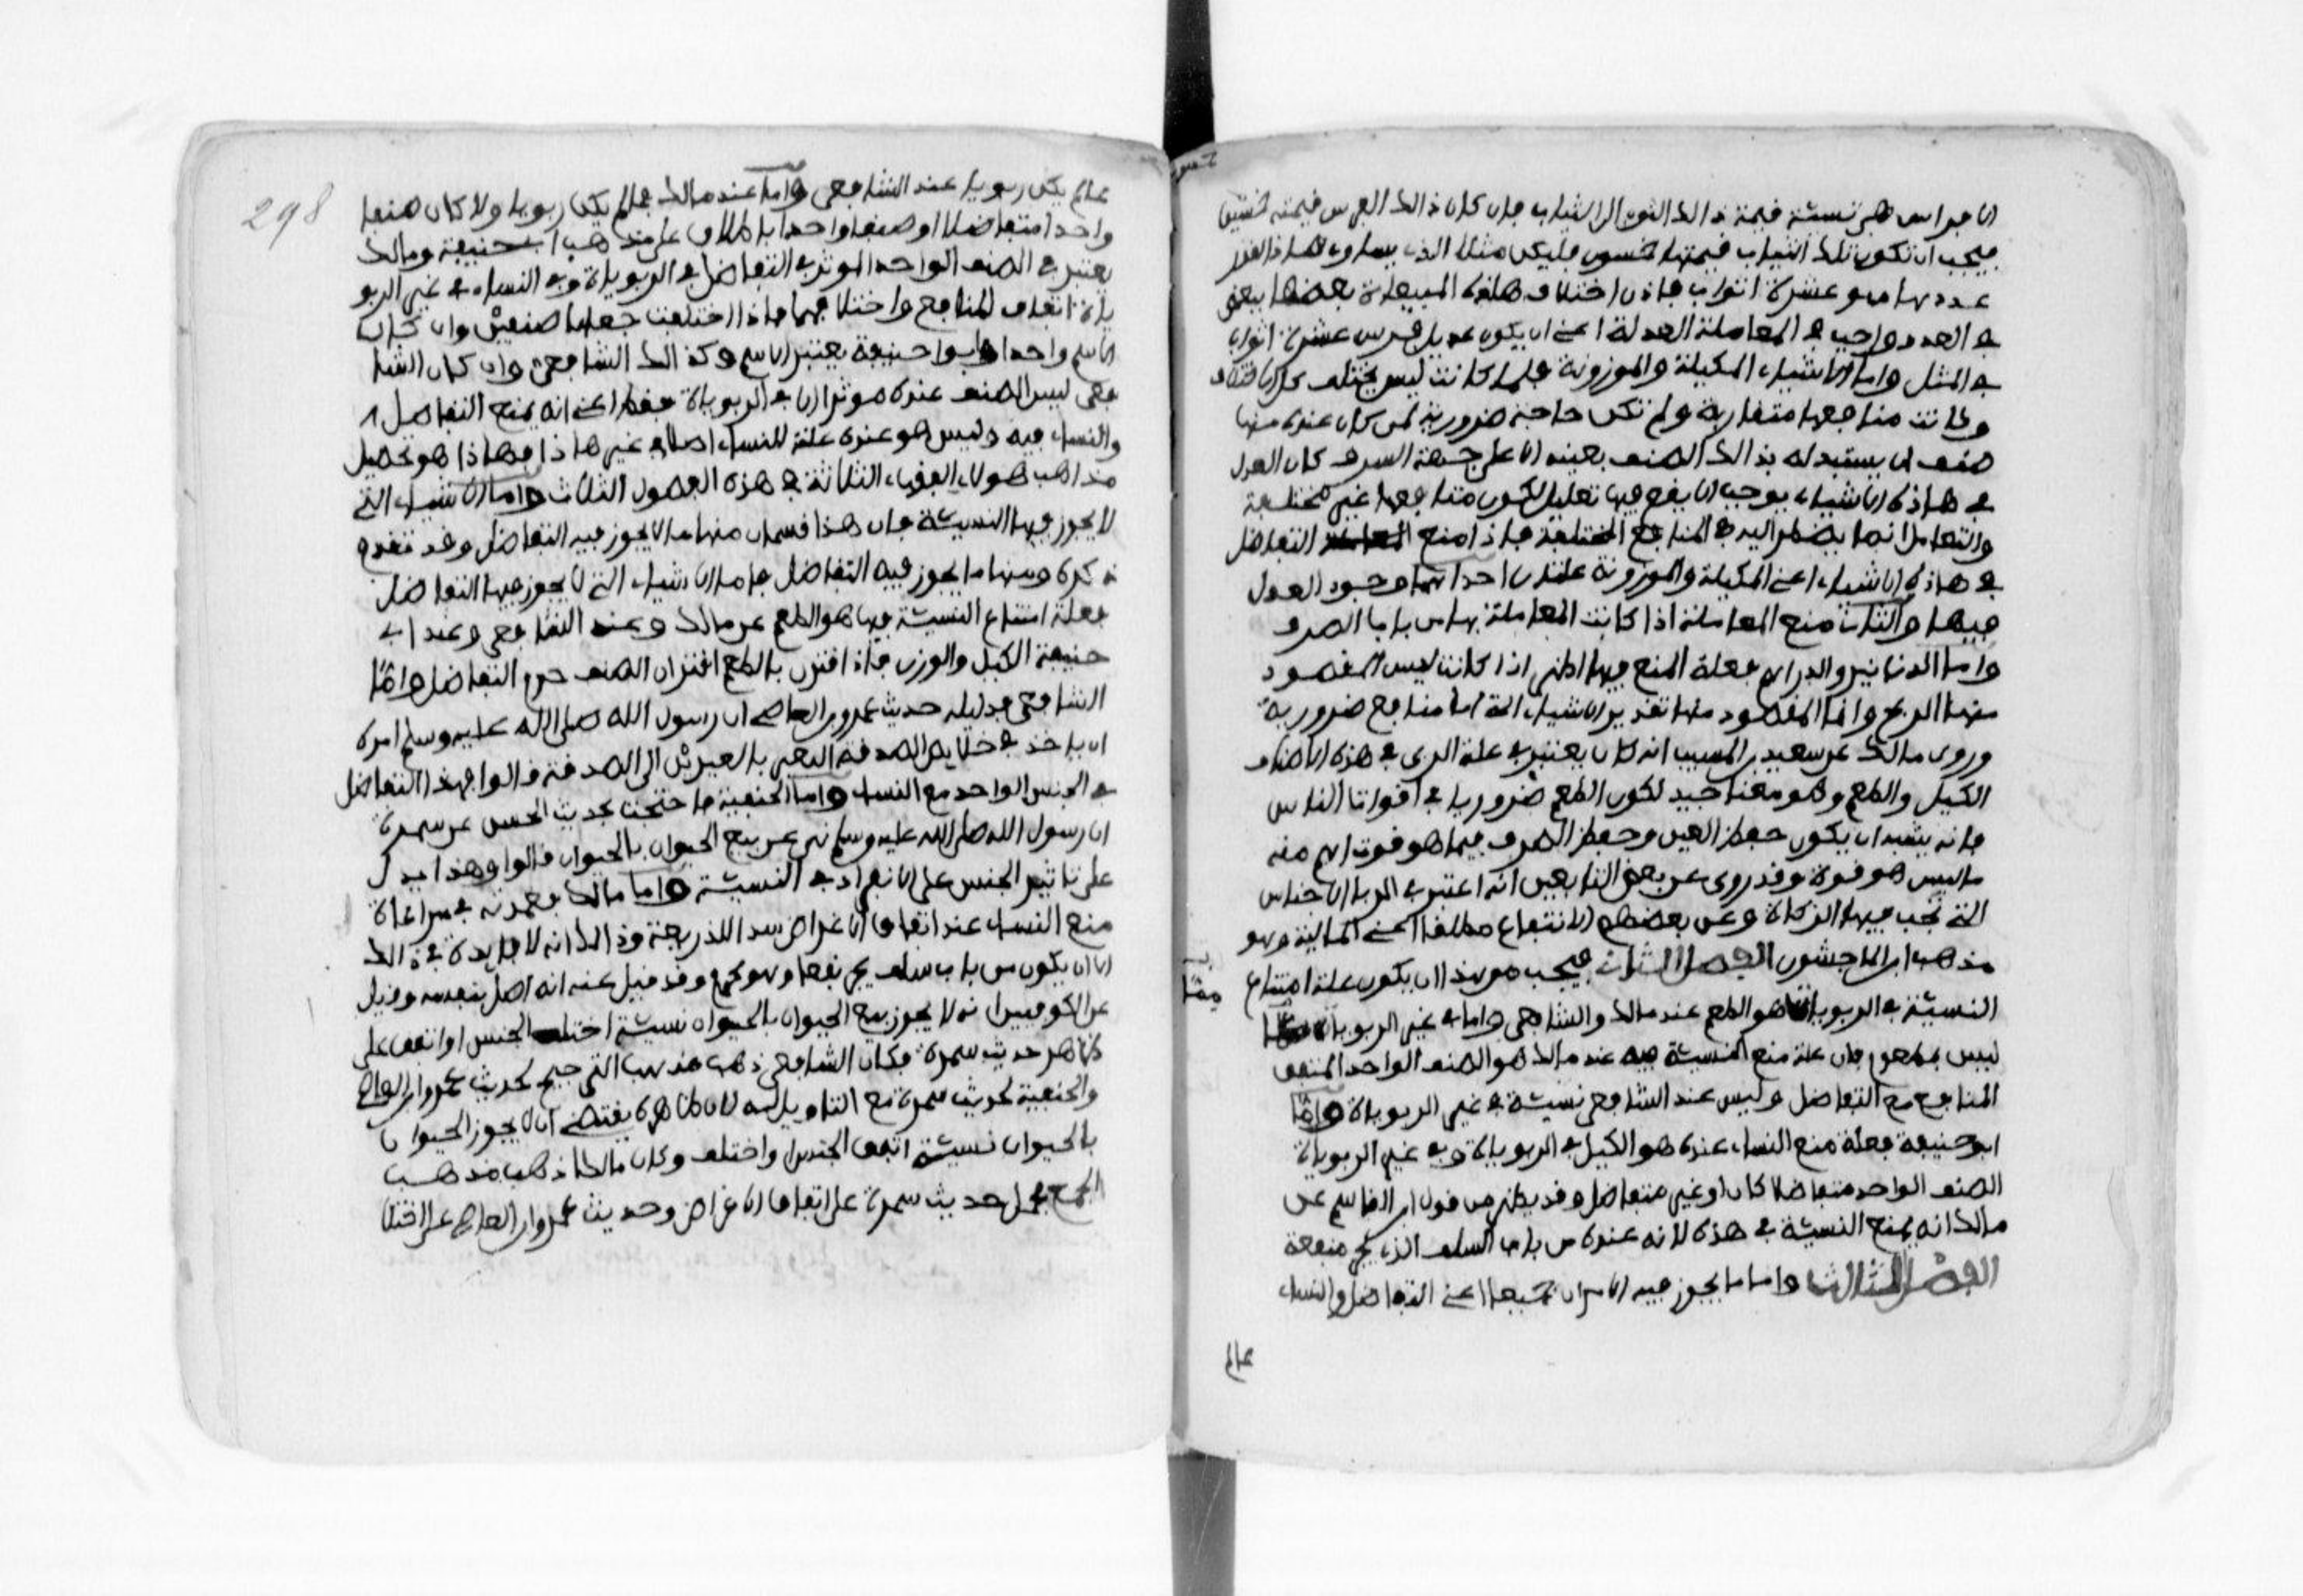 الافراس هي نسبة قيمة ذالك الثوب الى الثياب فان كان ذالك الفرس قيمته خمسين
فيجب ان تكون تلك الثياب قيمتها خمسون فليكن مثلا الذي يساوي هاذا القدر
عددها هو عشرة اثواب فاذن اختلاف هاذه المبيعات بعضها ببعض
في العدد واجب في المعاملة العدلة اعني ان يكون عديل فرس عشرة اثواب
في المثل واما الاشياء المكيلة والموزونة فلما كانت ليس تختلف كل الاختلاف
وكانت منافعها متقاربة ولم تكن حاجة ضرورية لمن كان عنده منها
صنف ان يستبدله بذالك الصنف بعينه الا على جهة السرف كان العدل
في هاذه الاشياء يوجب الا يقع فيها تعامل لكون منافعها غير مختلفة
والتعامل انما يضطر اليه في المنافع المختلفة فاذا منع التفاضل
في هاذه الاشياء اعني المكيلة والموزونة علتان احداهما وجود العدل
فيها والثانية منع المعاملة اذا كانت المعاملة بها من باب السرف
واما الدنانير والدراهم فعلة المنع فيها اظهر اذا كانت ليس المقصود
منها الربح وانما المقصود منها تقدير الاشياء التي لها منافع ضرورية
وروى مالك عن سعيد بن المسيب انه كان يعتبر في علة الربى في هذه الاصناف
الكيل والطعم وهو معنا جيد لكون الطعم ضروريا في اقوات الناس
فانه يشبه ان يكون حفظ العين وحفظ السرف فيما هو قوت اهم منه
ما ليس هو قوة وقد روي عن بعض التابعين انه اعتبر في الربا الاجناس
التي تجب فيها الزكاة وعن بعضهم الانتفاع مطلقا اعني المالية وهو
مذهب ابن الماجشون الفصل الثاني فيجب من هذا ان يكون علة امتناع
النسيئة في الربويات هو الطعم عند مالك والشافعي واما في غير الربويات مما
ليس بمطعوم فان علة منع النسيئة فيه عند مالك هو الصنف الواحد المتفق
المنافع مع التفاضل وليس عند الشافعي نسيئة في غير الربويات واما
ابو حنيفة فعلة منع النساء عنده هو الكيل في الربويات وفي غير الربويات
الصنف الواحد متفاضلا كان او غير متفاضل وقد يظهر من قول ابن القاسم عن
مالك انه يمنع النسيئة في هذه لانه عنده من باب السلف الذي يجر منفعة
الفصل الثالث واما ما يجوز فيه الامران جميعا اعني التفاضل والنساء
فما لم
298
فما لم يكن ربويا عند الشافعي واما عند مالك فما لم يكن ربويا ولا كان صنفا
واحدا متفاضلا او صنفا واحدا باطلاق على مذهب ابي حنيفة ومالك
يعتبر في الصنف الواحد الموثر في التفاضل في الربويات وفي النساء في غير الربو
يات اتفاق المنافع واختلافها فاذا اختلفت جعلها صنفين وان كان
الاسم واحدا وابو حنيفة يعتبر الاسم وكذالك الشافعي وان كان الشا
فعي ليس الصنف عنده موثرا الا في الربويات فقط اعني انه يمنع التفاضل
والنساء فيه وليس هو عنده علة للنساء اصلا في غير هاذا فهاذا هو تحصيل
مذاهب هولاء الفقهاء الثلاثة في هذه الفصول الثلاث واما الاشياء التي
لا يجوز فيها النسيئة فان هذا قسمان منها ما لا يجوز فيه التفاضل وقد تقدم
ذكره ومنها ما يجوز فيه التفاضل فاما الاشياء التي لا يجوز فيها التفاضل
فعلة امتناع النسيئة فيها هو الطعم عن مالك وعند الشافعي وعند ابي
حنيفة الكيل والوزن فاذا اقترن بالطعم اقتران الصنف حرم التفاضل واما
الشافعي فدليله حديث عمرو بن العاصي ان رسول الله صلى الله عليه وسلم امره
ان ياخذ في قلايص الصدقة البعير بالبعيرين الى الصدقة قالوا فهذا التفاضل
في الجنس الواحد مع النساء واما الحنفية فاحتجت بحديث الحسن عن سمرة
ان رسول الله صلى الله عليه وسلم نهى عن بيع الحيوان بالحيوان قالوا وهذا يدل
على تاثير الجنس على الانفراد في النسيئة واما مالك فعمدته في مراعاة
منع النساء عند اتفاق الاغراض سد اللذريعة وذالك انه لا فايدة في ذالك
الا ان يكون من باب سلف يجر نفعا وهو محرم وقد قيل عنه انه اصل بنفسه وقيل
عن الكوفيين انه لا يجوز بيع الحيوان بالحيوان نسيئة اختلف الجنس او اتفق على
ظاهر حديث سمرة فكان الشافعي ذهب مذهب الترجيح لحديث عمرو ابن العاصي
والحنفية لحديث سمرة مع التاويل له لان ظاهره يقتضي ان لا يجوز الحيوان
بالحيوان نسيئة اتفق الجنس او اختلف وكان مالكا ذهب مذهب
الجمع فحمل حديث سمرة على اتفاق الاغراض وحديث عمرو ابن العاص على اختلا